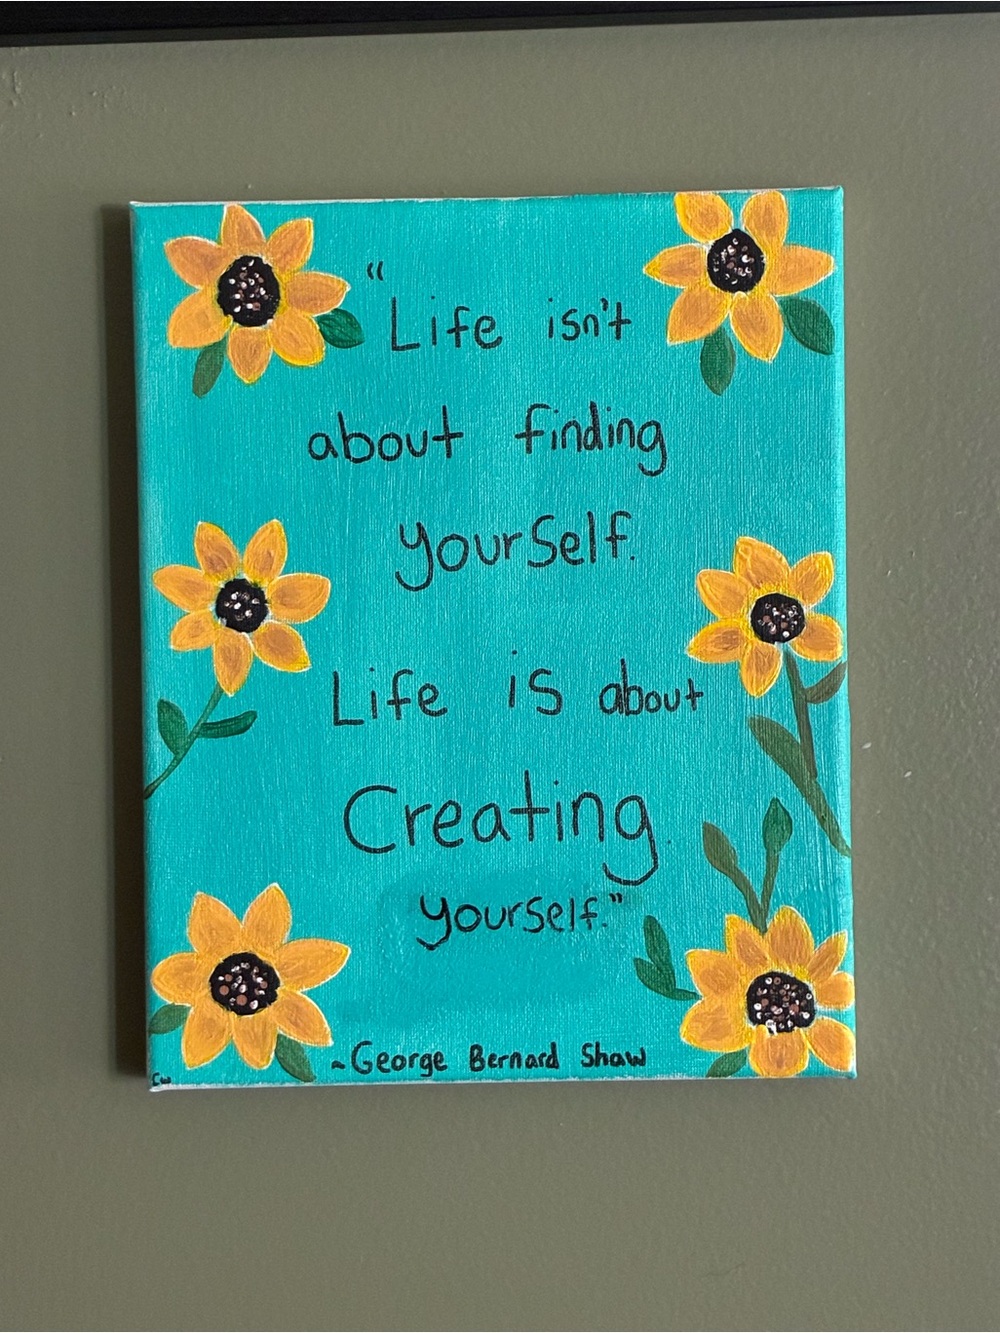 "Life isn't
about finding
yourself.
Life is about
Creating
yourself."
~George Bernard Shaw